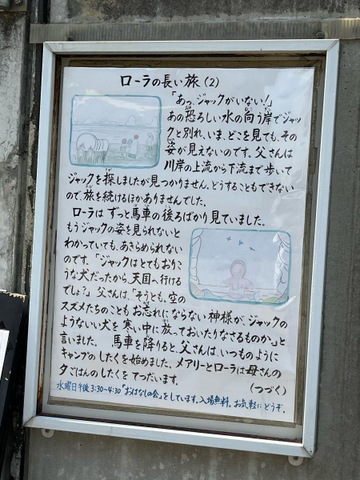 ローラの長い旅(2)
「あっ、ジャックがいない!」
あの恐ろしい水の向う岸でジャッ
クと別れ、いま、どこを見ても、その
姿が見えないのです。父さんは
川岸の上流から下流まで歩いて
ジャックを探しましたが見つかりません。どうすることもできない
ので、旅を続けるほかありませんでした。
ローラは ずっと馬車の後ろばかり見ていました。
もうジャックの姿を見られないと
わかっていても、あきらめられない
のです。「ジャックはとてもおりこ
うな犬だったから、天国へ行ける
でしょ?」父さんは、「そうとも、空の
スズメたちのこともお忘れにならない神様が、ジャックの
ようないい犬を寒い中に放っておいたりなさるものか。」と
言いました。 馬車を降りると、父さんは、いつものように
キャンプのしたくを始めました。メアリーとローラは母さんの
夕ごはんのしたくをてつだいます。
(つづく)
水曜日午後3:30~4:30 "おはなしの会"をしています。入場無料。お気軽にどうぞ。